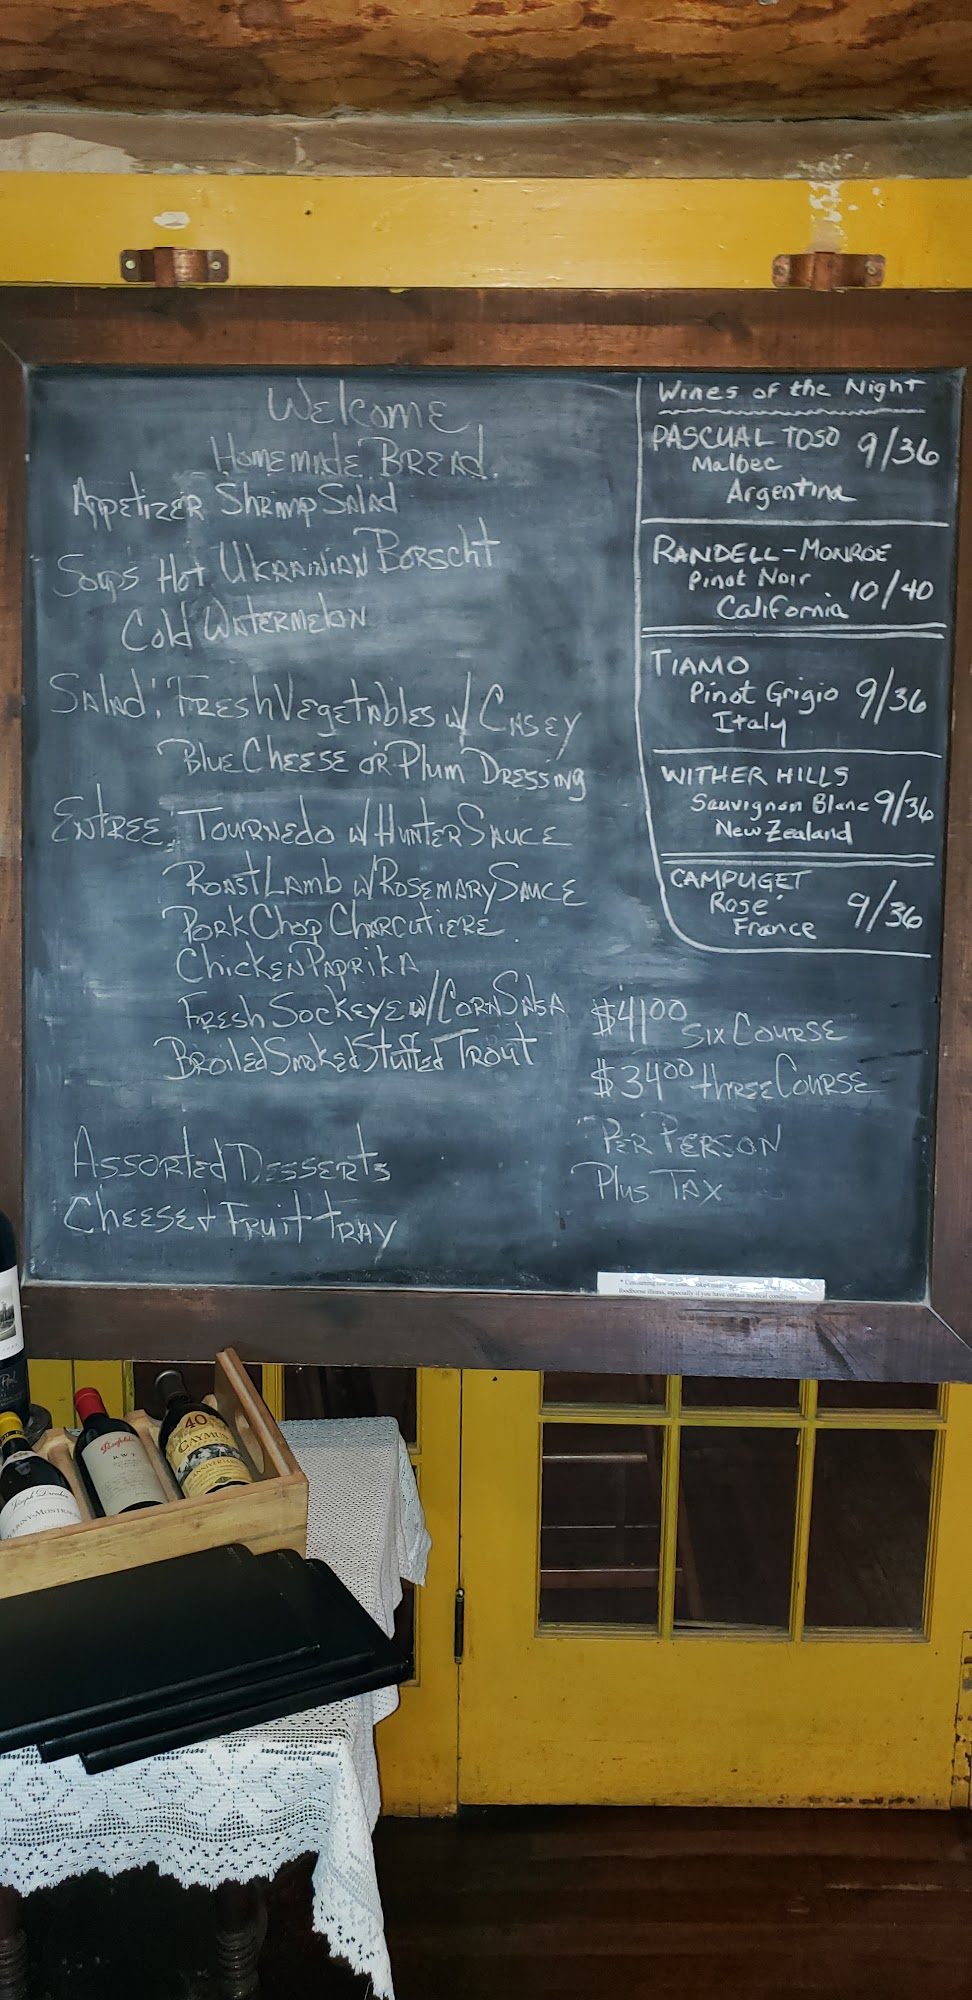 Welcome
Homemade Bread
Appetizer Shrimp Salad
Soups Hot Ukrainian Borscht
Cold Watermelon
Salad: Fresh Vegetables w/ Casey
Blue Cheese or Plum Dressing
Entree: Tournedo w/ Hunter Sauce
Roast Lamb w/ Rosemary Sauce
Pork Chop Charcutiere
Chicken Paprika
Fresh Sockeye w/ Corn Salsa
Broiled Smoked Stuffed Trout
Assorted Desserts
Cheese + Fruit tray
Wines of the Night
PASCUAL TOSO 9/36
Malbec
Argentina
RANDELL-MONROE
Pinot Noir 10/40
California
TIAMO
Pinot Grigio 9/36
Italy
WITHER HILLS
Sauvignon Blanc 9/36
New Zealand
CAMPUGET
Rosé 9/36
France
$41.00 Six Course
$34.00 three Course
Per Person
Plus Tax
foodborne illness, especially if you have certain medical conditions
Penfolds
RWT
40
CAYMUS
ANNIVERSARY
Joseph Drouhin